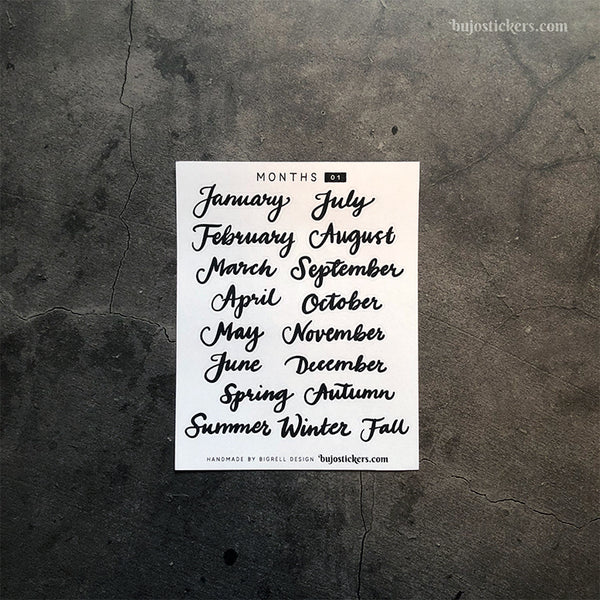 bujostickers.com
MONTHS 01
January July
February August
March September
April October
May November
June December
Spring Autumn
Summer Winter Fall
HANDMADE BY BIGRELL DESIGN bujostickers.com